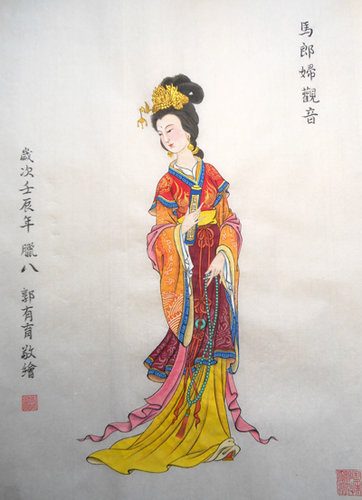 馬郎婦觀音
歲次壬辰年 臘八 郭有育敬繪